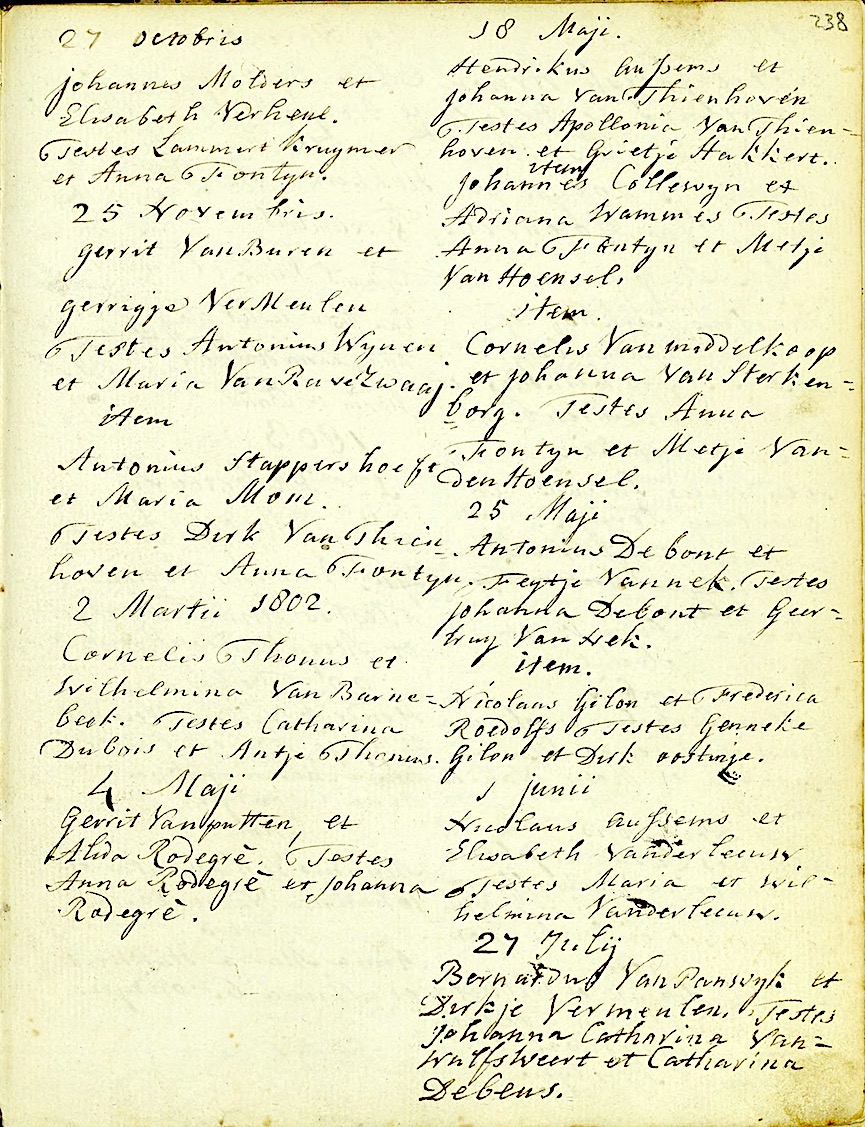 238
27 octobris
johannes Molders et
Elisabeth Verheul.
Testes Lammert Kruymer
et Anna Fontyn.
25 Novembris.
gerrit Van Buren et
gerrigje VerMeulen
Testes Antonius Wynen
et Maria Van Ravezwaaj.
item
Antonius Stappershoeft
et Maria Mom.
Testes Dirk Van Thien
hoven et Anna Fontyn.
2 Martii 1802.
Cornelis Thonus et
Wilhelmina Van Barne=
beek. Testes Catharina
Dubois et Antje Thonus.
4 Maji
Gerrit Vanputten, et
Alida Rodegrè. Testes
Anna Rodegrè et Johanna
Rodegrè.
18 Maji.
Hendrikus Aussems et
Johanna Van Thienhoven
Testes Apollonia Van Thien=
hoven et Grietje Hakkert.
item
Johannes Collewyn et
Adriana Wammes Testes
Anna Fontyn et Metje
Van Hoensel.
item.
Cornelis Van middelkoop
et johanna Van Sterken=
borg. Testes Anna
Fontyn et Metje Van=
den Hoensel.
25 Maji
Antonius De bont et
Feytje Vannek. Testes
Johanna Debont et Geer=
truy Van Nek.
item.
Nicolaas Gilon et Frederica
Roedolfs Testes Genneke
Gilon et Dirk oostinje.
1 junii
Nicolaus Aussems et
Elisabeth Vanderleeuw
Testes Maria et Wil=
helmina Vanderleeuw.
27 Julij
Bernardus Van Panswyk et
Dirkje Vermeulen. Testes
Johanna Catharina Van=
Wulfsweert et Catharina
Debeus.